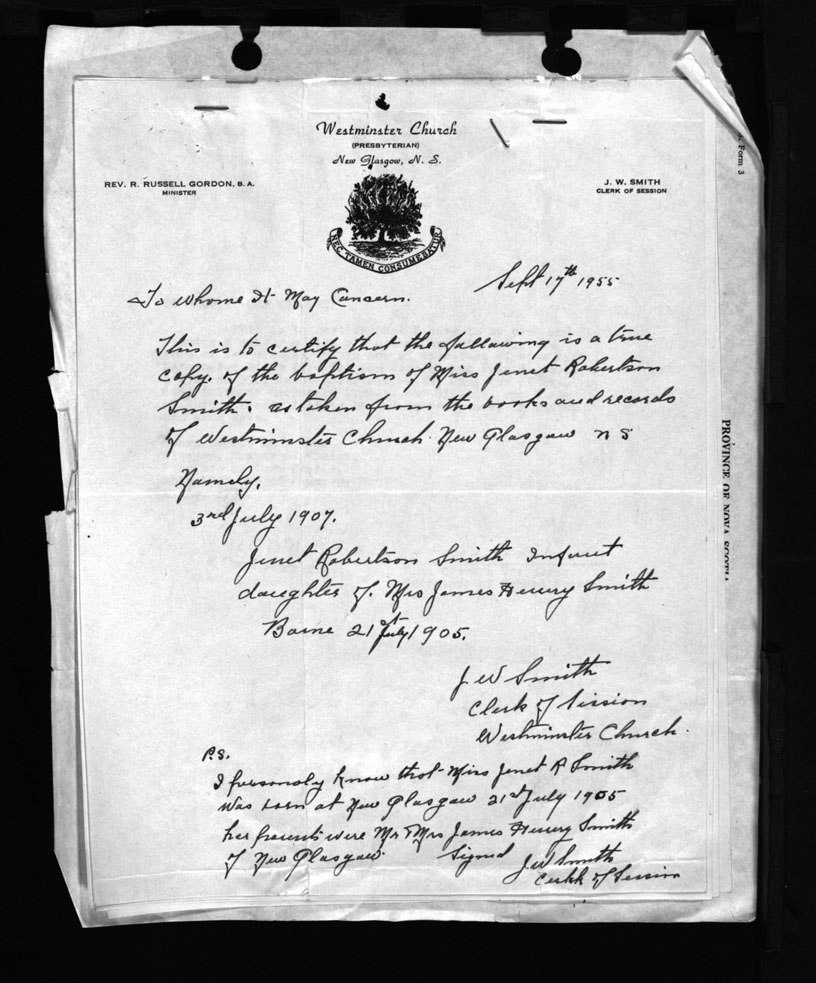 Westminster Church
(PRESBYTERIAN)
New Glasgow, N. S.
REV. R. RUSSELL GORDON, B. A.
MINISTER
J. W. SMITH
CLERK OF SESSION
NEC TAMEN CONSUMEBATUR
Form 3
PROVINCE OF NOVA SCOTIA
Sept 17th 1955
To whome It May Concern.
This is to certify that the following is a true
copy. of the baptism of Miss Jenet Robertson
Smith. as taken from the books and records
of Westminster Church New Glasgow N S
Namely,
3rd July 1907.
Jenet Robertson Smith Infant
daughter of. Mrs James Henry Smith
Borne 21st July 1905.
J W Smith
Clerk of Session
Westminster Church.
P.S.
I personaly know that Miss Jenet R Smith
was born at New Glasgow 21st July 1905
her parents were Mr & Mrs James Henry Smith
of New Glasgow. Signed J W Smith
Clerk of Session